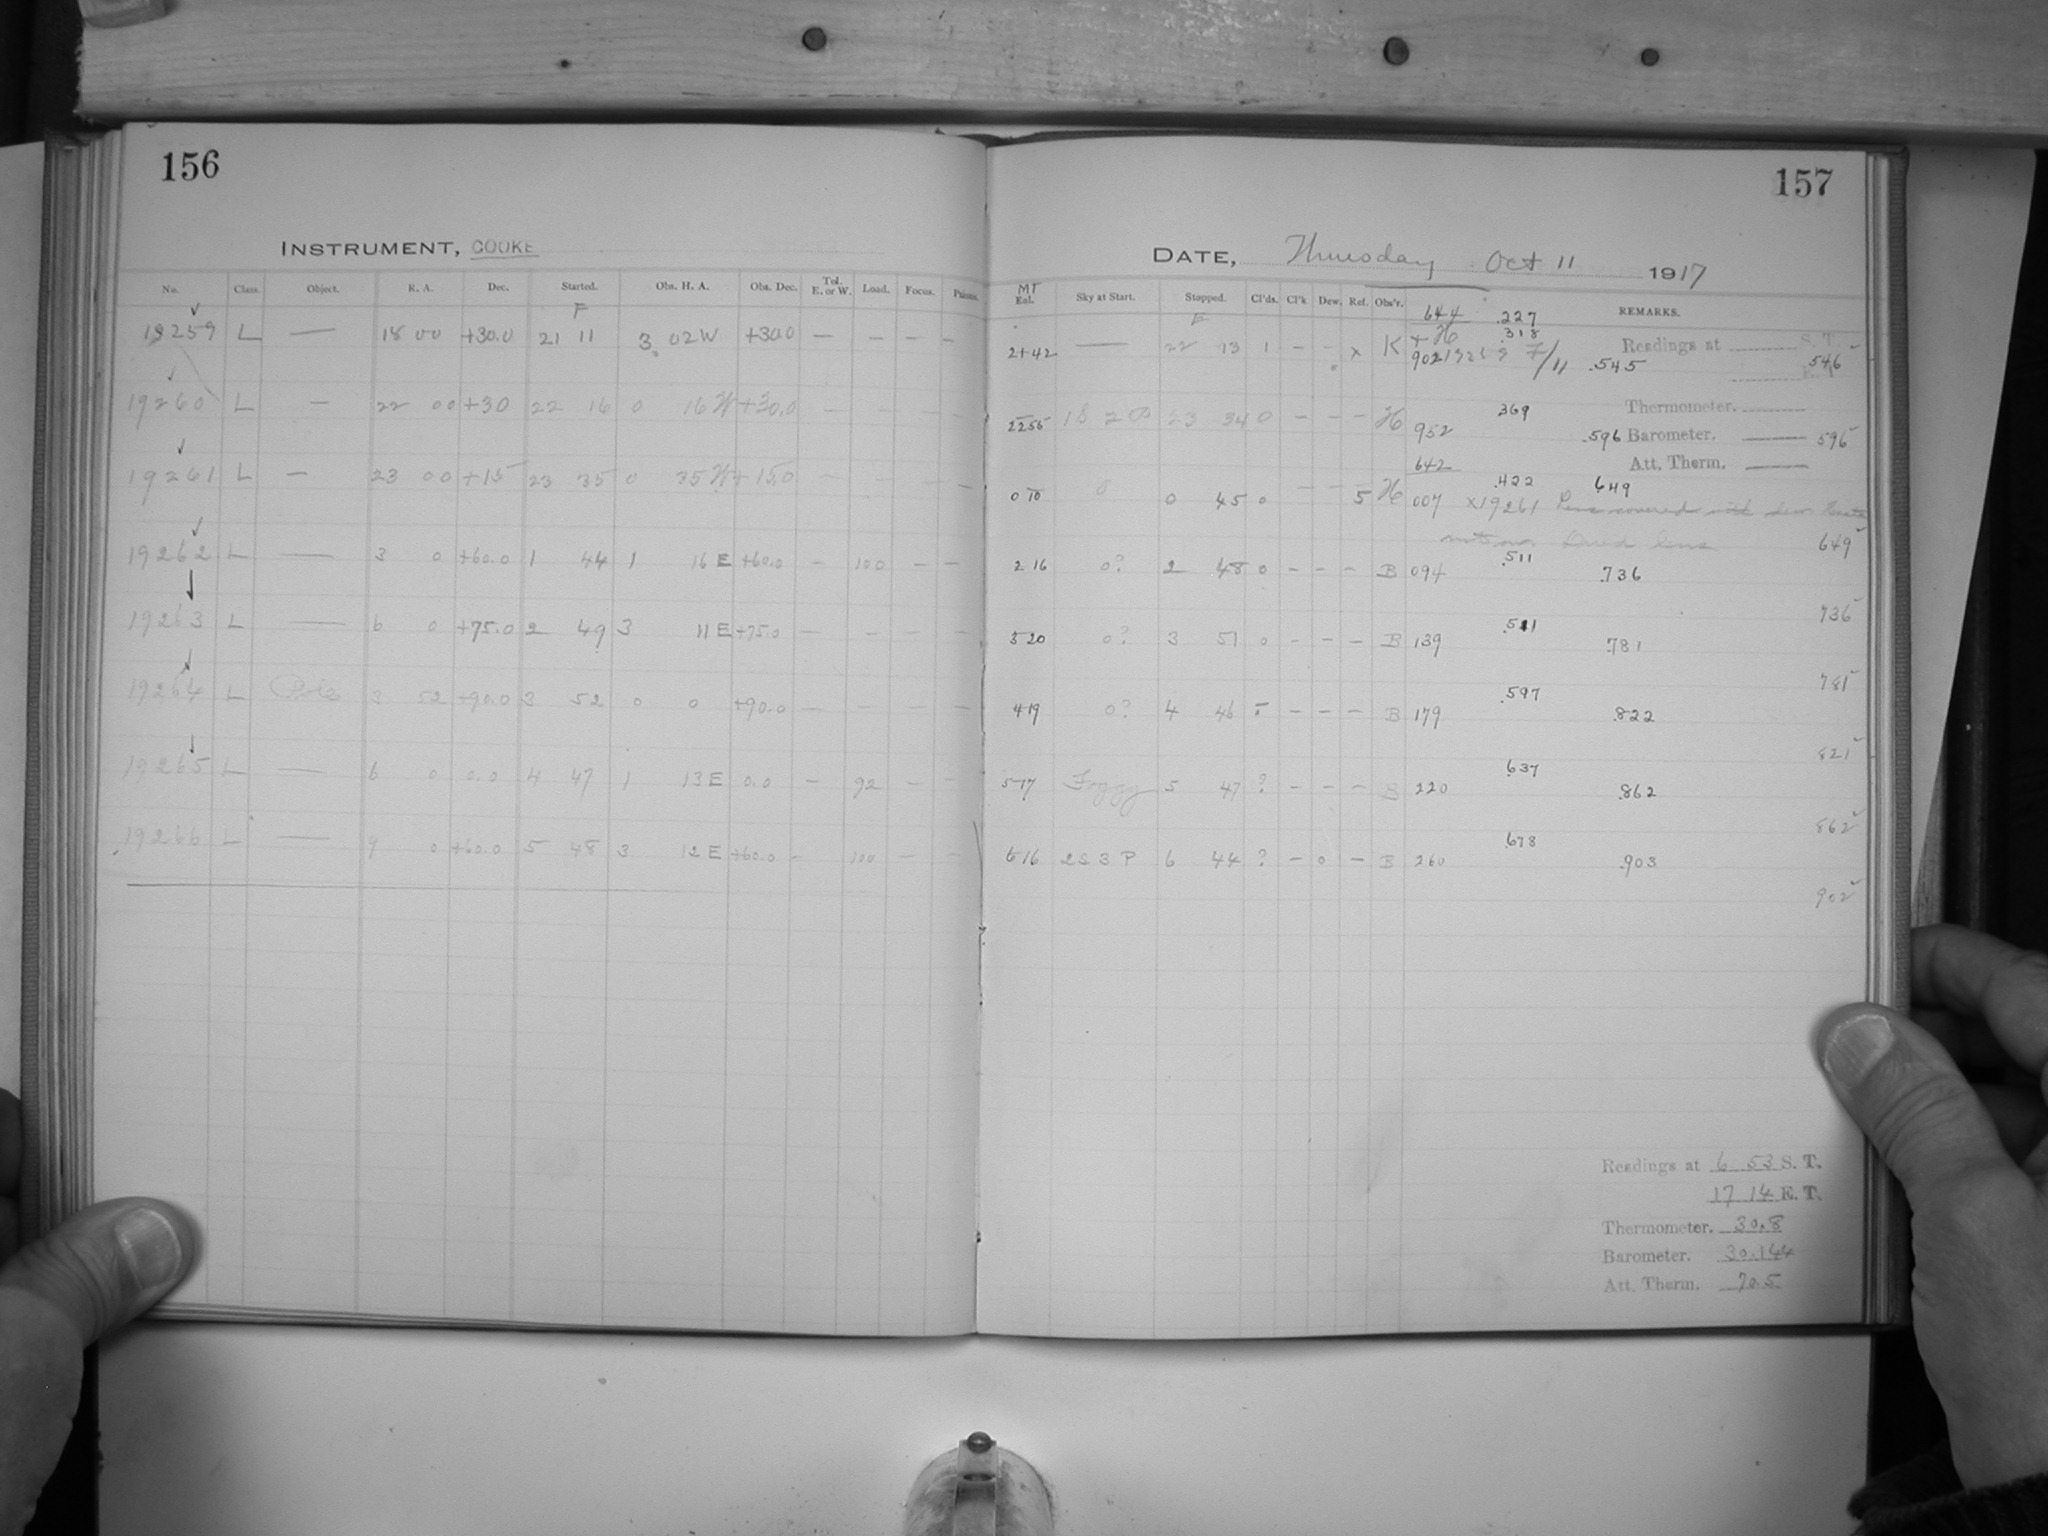 156
INSTRUMENT, COOKE
No. Class. Object. R. A. Dec. Started. Obs. H. A. Obs. Dec. Tel. E. or W. Load. Focus. Prisms.
F
19259 L — 18 00 +30.0 21 11 3 02 W +30.0 — — — —
19260 L — 22 00 +30 22 16 0 16 W +30.0 — — — —
19261 L — 23 00 +15 23 35 0 35 W +15.0 — — — —
19262 L — 3 0 +60.0 1 44 1 16 E +60.0 — 100 — —
19263 L — 6 0 +75.0 2 49 3 11 E +75.0 — — — —
19264 L Pole 3 52 +90.0 3 52 0 0 +90.0 — — — —
19265 L — 6 0 0.0 4 47 1 13 E 0.0 — 92 — —
19266 L — 9 0 +60.0 5 48 3 12 E +60.0 — 100 — —
157
DATE, Thursday Oct 11 1917
MT
Eal. Sky at Start. Stopped. Cl'ds. Cl'k Dew. Ref. Obs'r. REMARKS.
644 .227
21 42 — 22 13 1 — — x K + H .318
902 7/11 .545 546
Readings at S. T.
E. T.
Thermometer.
Barometer. —
Att. Therm. —
22 55 1S 2 P 23 34 0 — — — H 952 369 .596 596
642
0 10 0 0 45 0 — — 5 H 007 .422 649
x19261 Pens covered with dew
649
2 16 0? 2 48 0 — — — B 094 .511 .736
736
3 20 0? 3 51 0 — — — B 139 .781
781
4 19 0? 4 46 5 — — — B 179 .597 .822
821
5 17 Foggy 5 47 ? — — — B 220 .637 .862
862
6 16 2S 3 P 6 44 ? — 0 — B 260 .678 .903
902
Readings at 6 53 S. T.
17 14 E. T.
Thermometer. 30.8
Barometer. 30.144
Att. Therm. 70.5